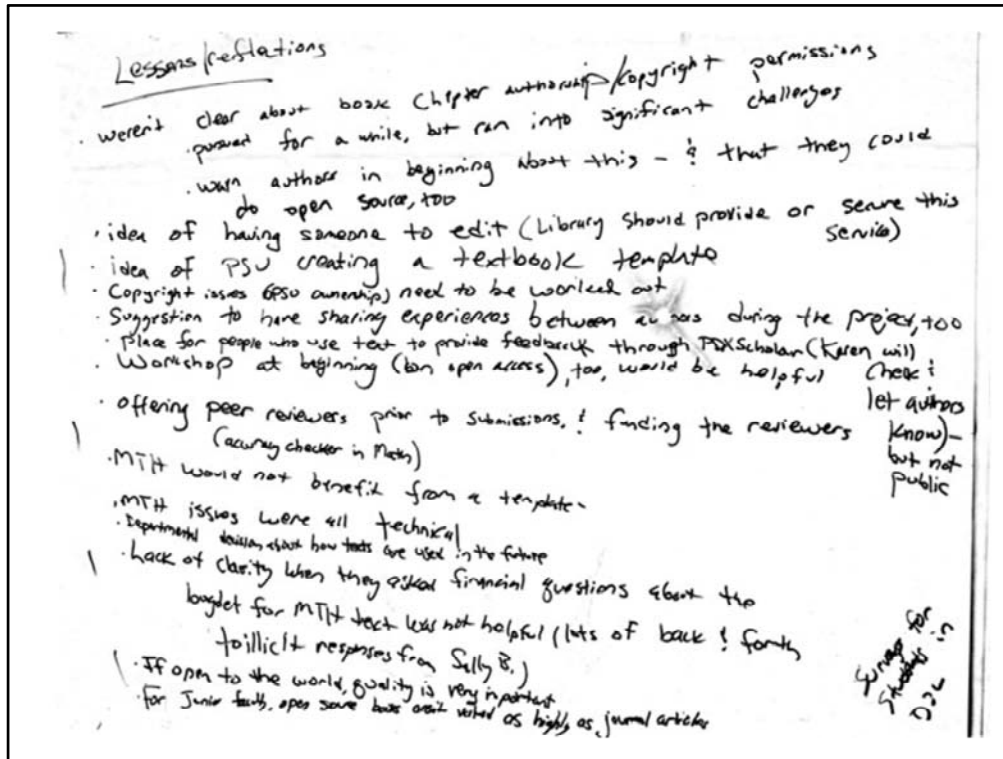 Lessons/reflections
· weren't clear about book chapter authorship/copyright permissions
· pursued for a while, but ran into significant challenges
· warn authors in beginning about this - & that they could
do open source, too
· idea of having someone to edit (Library should provide or secure this
service)
· idea of PSU creating a textbook template
· Copyright issues (PSU ownership) need to be worked out
· Suggestion to have sharing experiences between during the project, too
· Place for people who use text to provide feedback through PDXScholar (Karen will
check &
let authors
know) -
but not
public
· Workshop at beginning (on open access), too, would be helpful
· offering peer reviewers prior to submissions, & funding the reviewers
(accuracy checker in Math)
· MTH would not benefit from a template.
· MTH issues were all technical
· Departmental decision about how texts are used in the future
· Lack of clarity when they asked financial questions about the
bugdet for MTH text was not helpful (lots of back & forth
to illicit responses from Sally B.)
· If open to the world, quality is very important
· For Junior faculty, open source books aren't as highly as journal articles
Survey for
students in
D2L